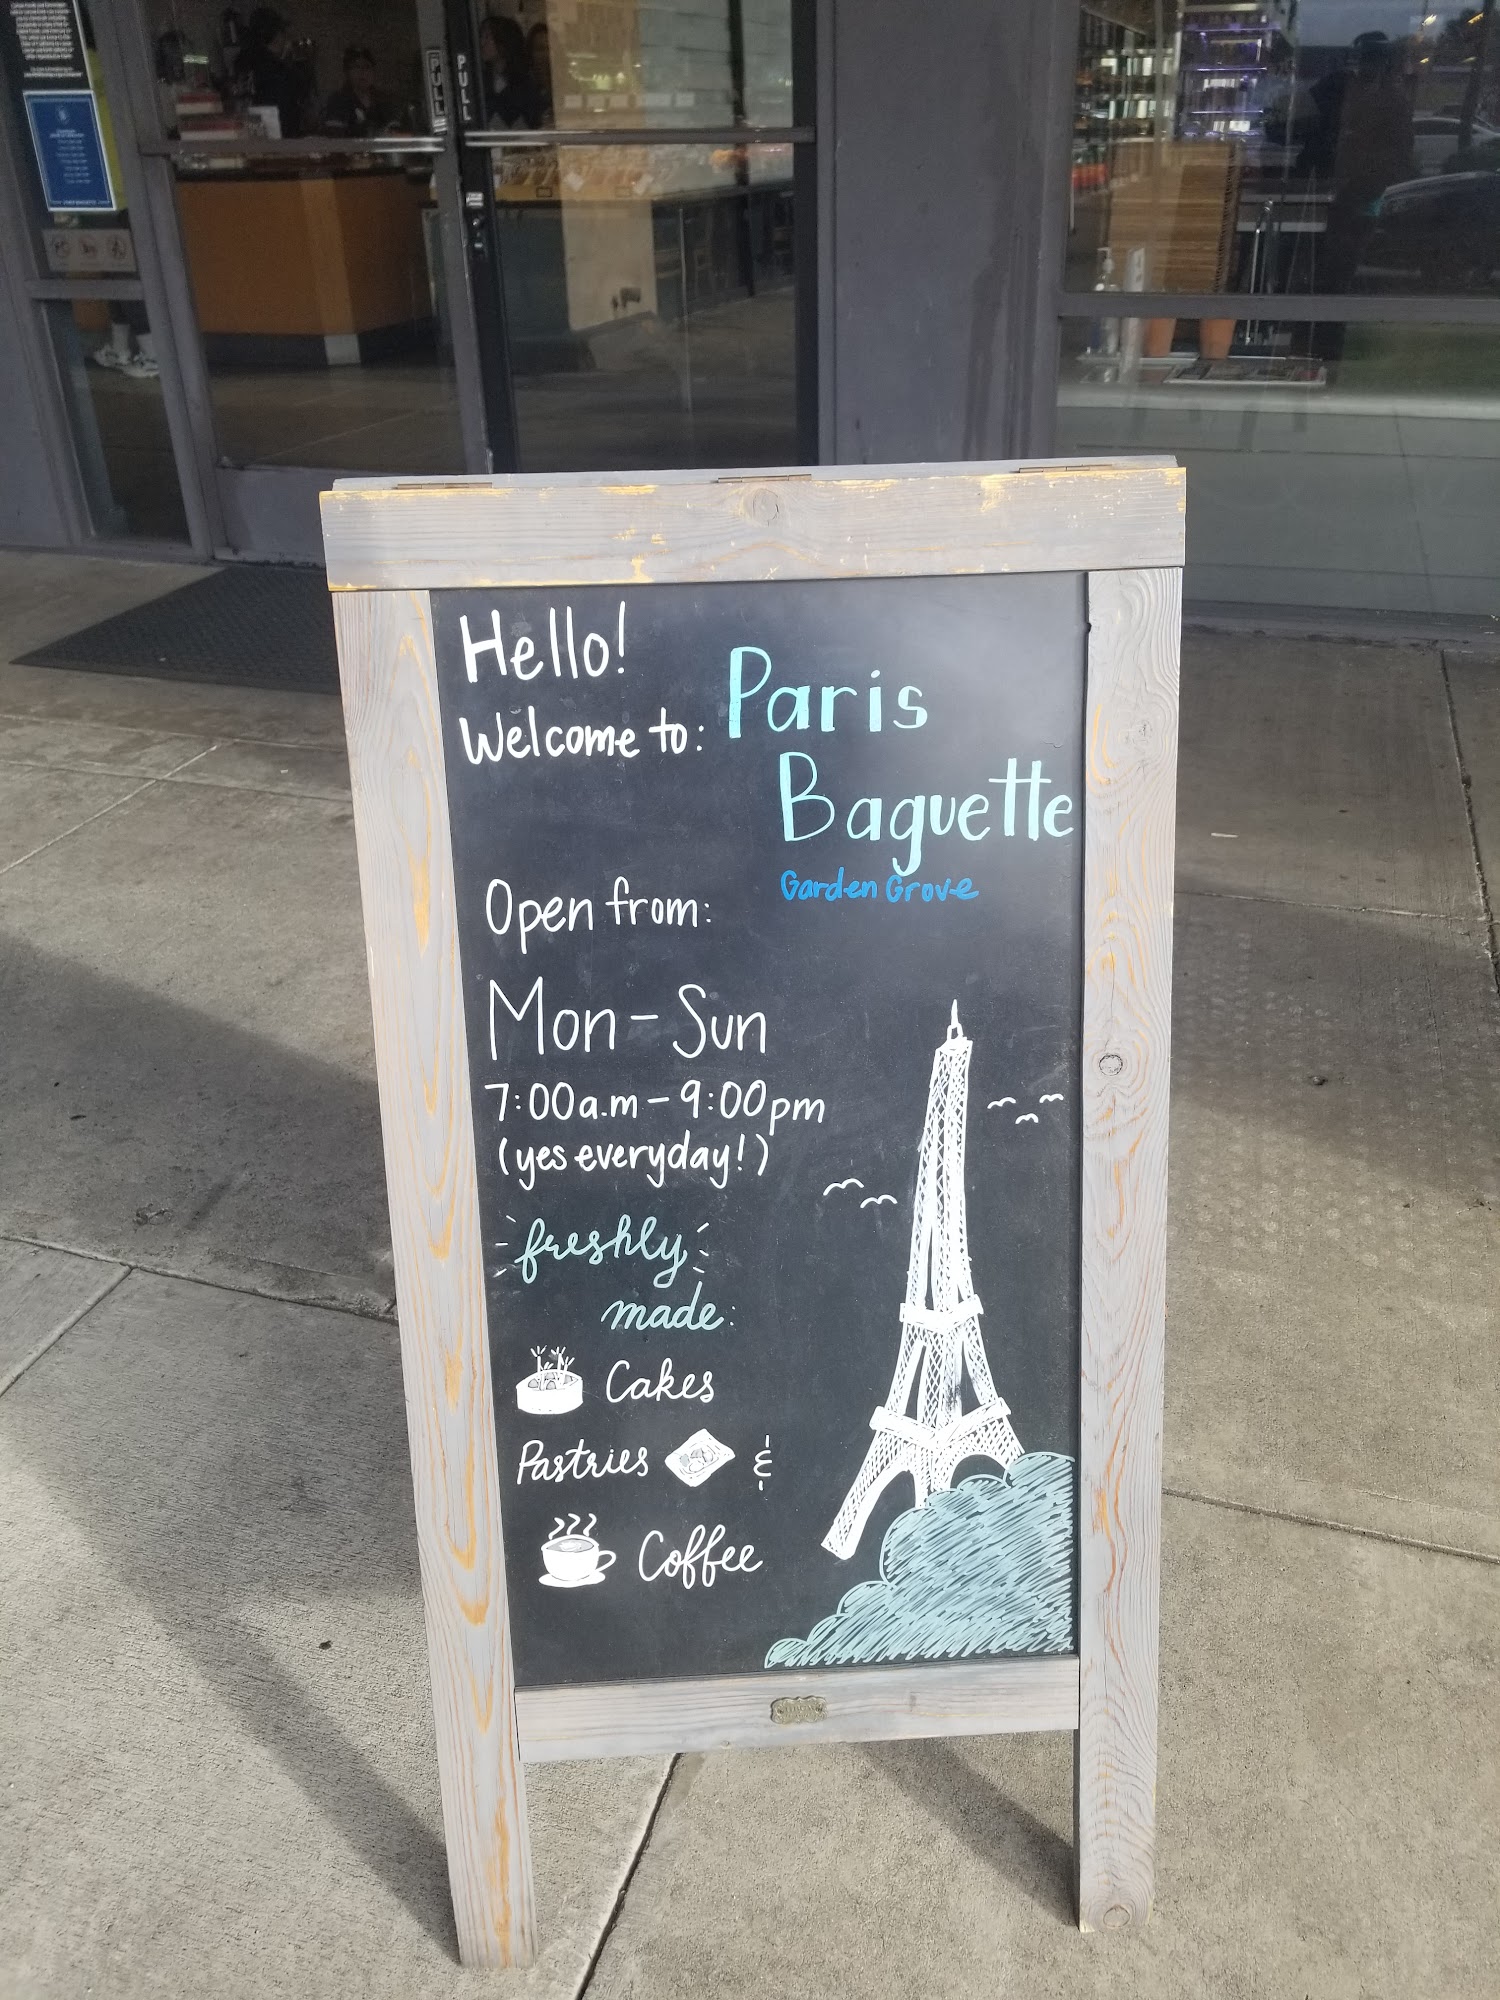 PULL
PULL
Hello!
Welcome to: Paris
Baguette
Garden Grove
Open from:
Mon-Sun
7:00a.m-9:00pm
(yes everyday!)
freshly
made:
Cakes
Pastries &
Coffee